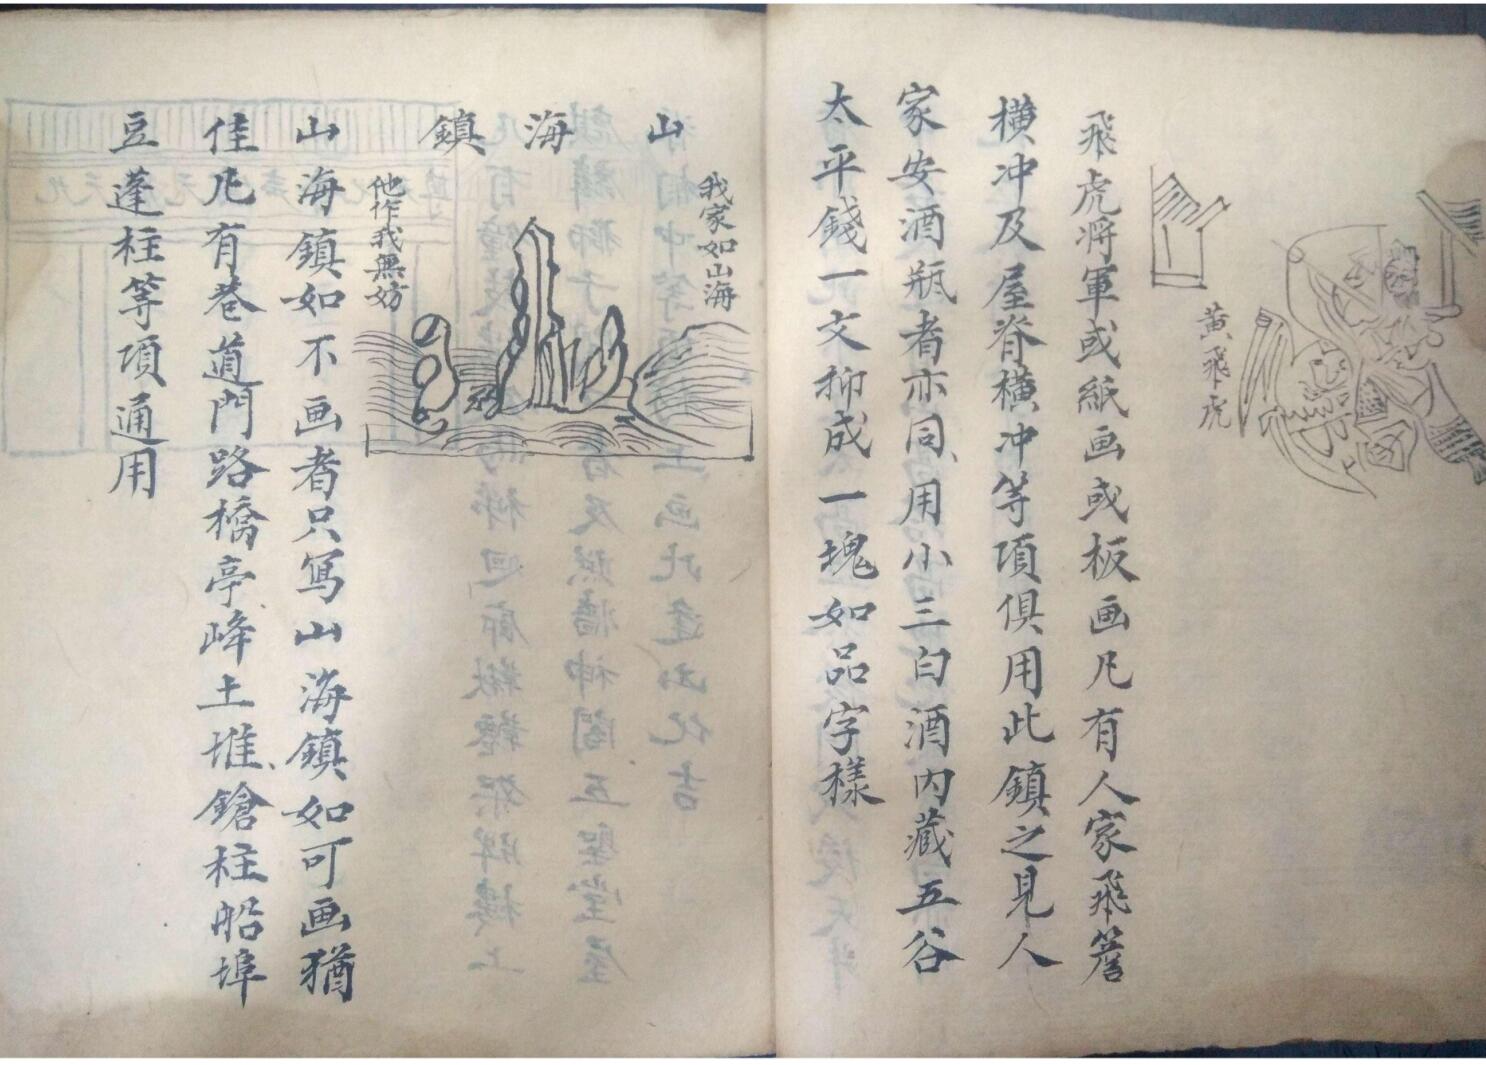 黃飛虎
飛虎将軍或紙画或板画凡有人家飛簷
橫冲及屋脊橫冲等項俱用此鎮之見人
家安酒瓶者亦同用小三白酒內藏五谷
太平錢一文抑成一塊如品字樣
山海鎮
我家如山海
他作我無妨
山海鎮如不画者只写山海鎮如可画猶
佳凡有巷道門路橋亭峰土堆鎗柱船埠
豆蓬柱等項通用